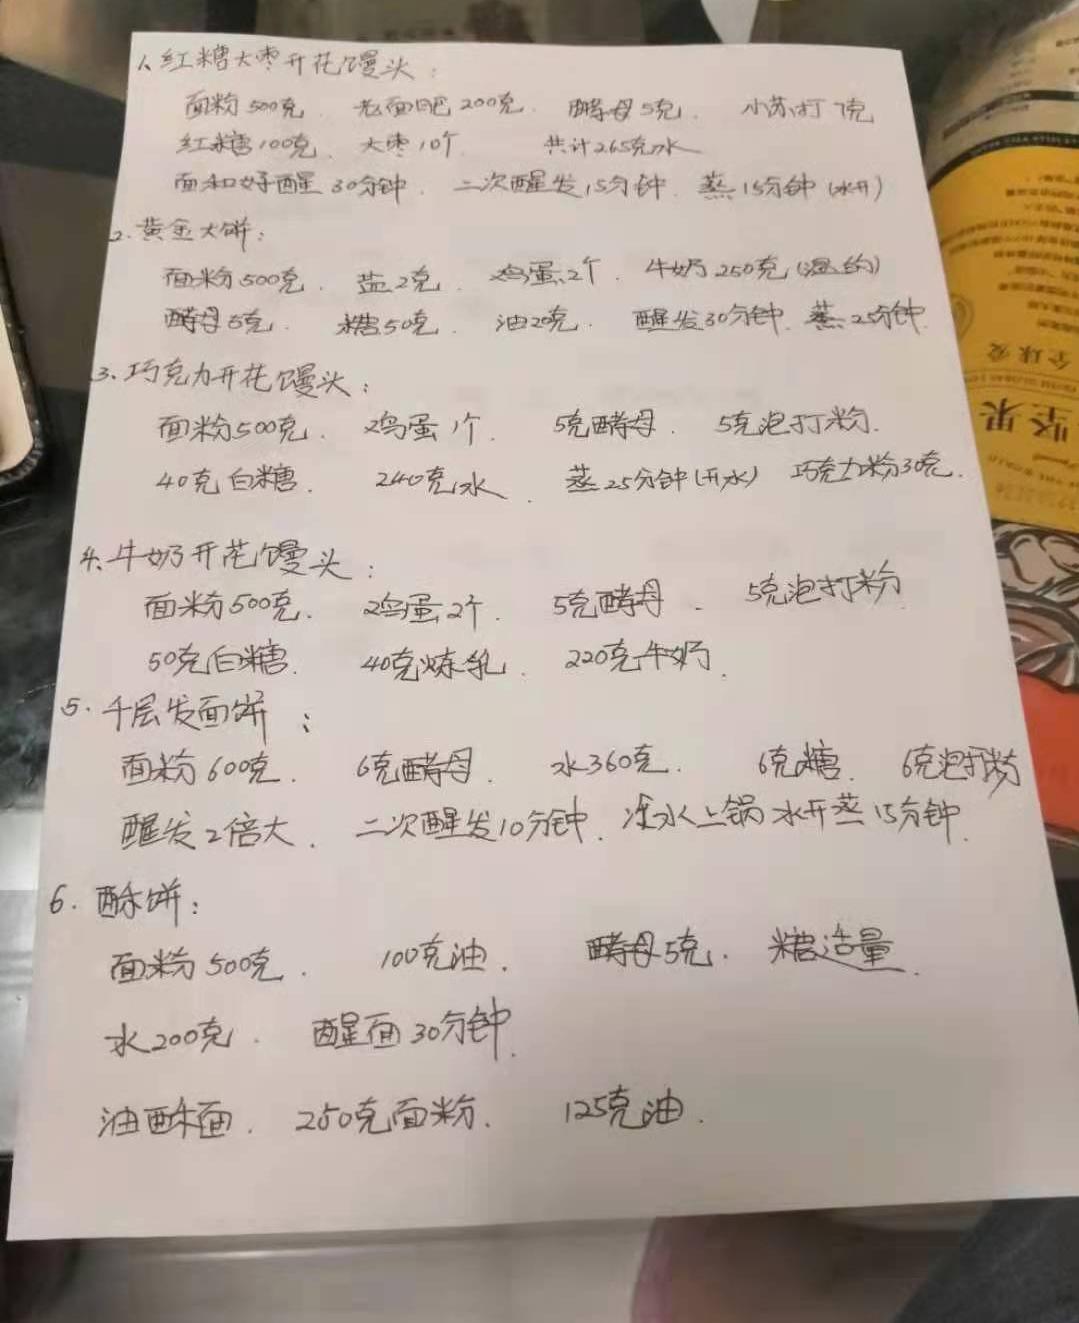 1、红糖大枣开花馒头：
面粉500克、老面肥200克、酵母5克、小苏打1克
红糖100克、大枣10个 共计265克水
面和好醒30分钟、二次醒发15分钟、蒸15分钟(水开)
2、黄金大饼：
面粉500克、盐2克、鸡蛋2个、牛奶250克(温的)
酵母5克、糖50克、油20克、醒发30分钟、蒸25分钟
3、巧克力开花馒头：
面粉500克、鸡蛋1个、5克酵母、5克泡打粉、
40克白糖、240克水、蒸25分钟(开水) 巧克力粉30克、
4、牛奶开花馒头：
面粉500克、鸡蛋2个、5克酵母、5克泡打粉
50克白糖、40克炼乳、220克牛奶、
5、千层发面饼：
面粉600克、6克酵母、水360克、6克糖、6克泡打粉
醒发2倍大、二次醒发10分钟、凉水上锅水开蒸15分钟、
6、酥饼：
面粉500克、100克油、酵母5克、糖适量、
水200克、醒面30分钟、
油酥面、250克面粉、125克油、
坚果
全球爱